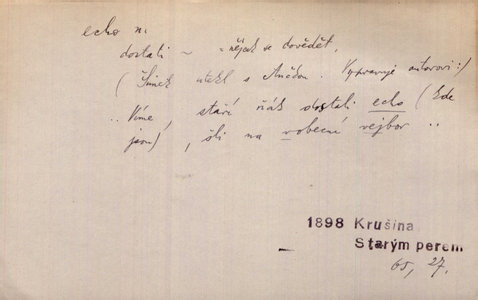 echo n.
dostali ~ = nějak se dovědět.
(Šimek utekl s Andou. Vypravuje autorovi:)
„Víme, staří ňák dostali echo (kde
jsou), šli na vobecní vejbor ..
1898 Krušina
Starým perem
65, 27.